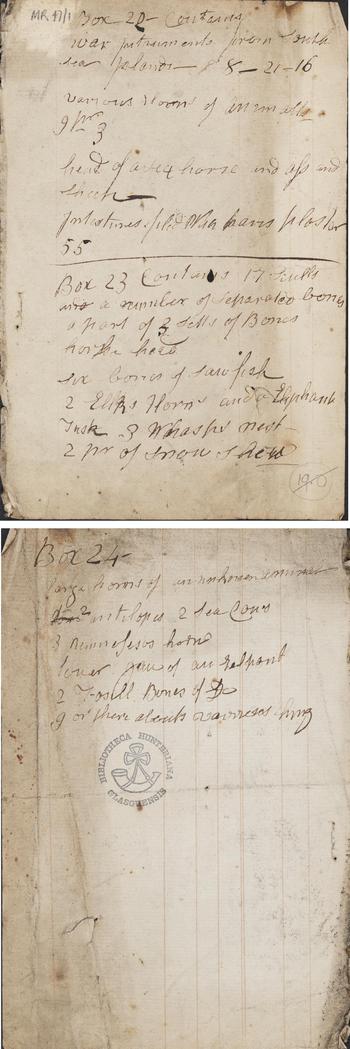 MR 47/1
Box 20 - Containing
war intruments from South
sea Islands - 8 - 21 - 16
various Horns of animals
9 pr 3
head of a sea horse and ass and
Intestines fild Wha
55
Box 23 Contains 17 sculls
and a number of seperated bones
a part of 3 setts of Bones
horse head
six bones of sawfish
2 Elks Horns and a Eliphant
Tusk 3 Whasps nest
2 pr of snow shews
Box 24
large horns of an unknown
2 antilopes 2 Sea Cows
3 horns
lower jaw of an
2 Fosill Bones of
9 or there abouts
BIBLIOTHECA HUNTERIANA
GLASGUENSIS